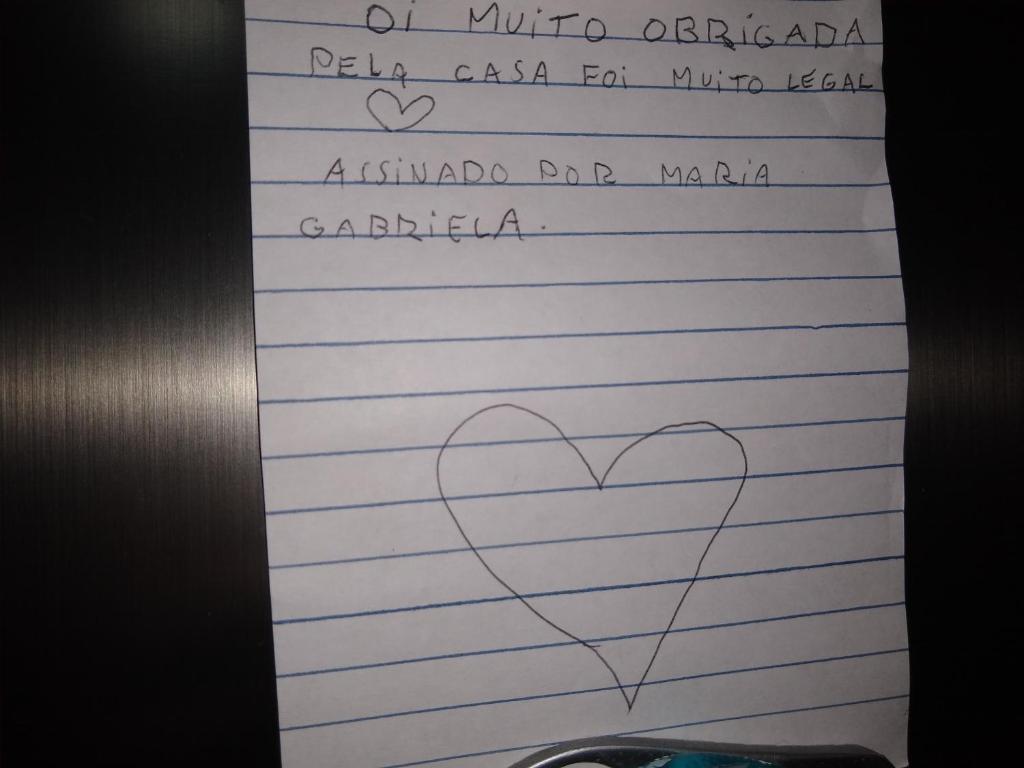 Oi MUiTO OBRiGADA
PELA CASA FOi MUiTO LEGAL
ASSiNADO POR MARiA
GABRiELA.